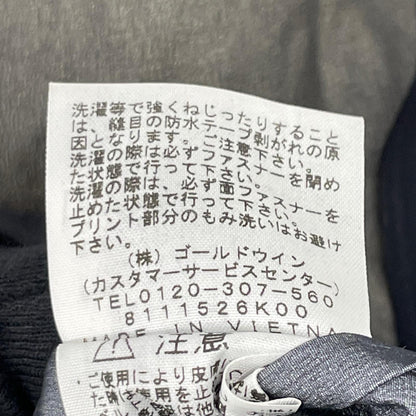 洗濯等で強くねじったりすること
は、縫目の防水テープ剥がれの原
因となります。ご注意下さい。
洗濯の際は必ずファスナーを閉め
た状態で行って下さい。
洗濯の際は、必ず面ファスナーを
止めた状態で行って下さい。
プリント部分のもみ洗いはお避け
下さい。
(株) ゴールドウイン
(カスタマーサービスセンター)
TEL0120-307-560
8111526K00
MADE IN VIETNA
注意
・ご使用により皮